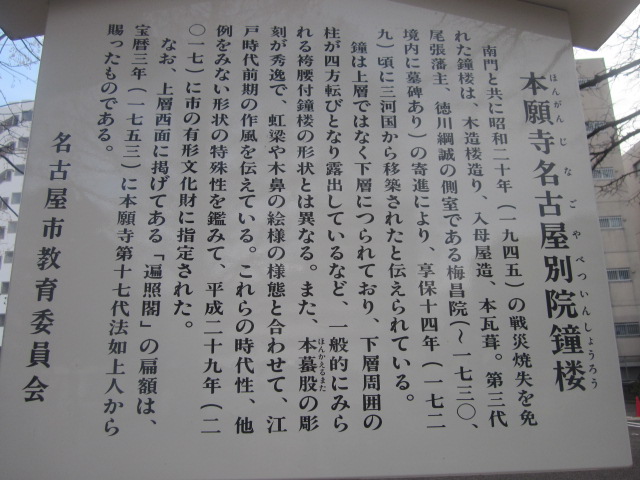 本願寺名古屋別院鐘楼
ほんがんじなごやべついんしょうろう
南門と共に昭和二十年（一九四五）の戦災焼失を免
れた鐘楼は、木造楼造り、入母屋造、本瓦葺。第三代
尾張藩主、徳川綱誠の側室である梅昌院（〜一七三〇、
境内に墓碑あり）の寄進により、享保十四年（一七二
九）頃に三河国から移築されたと伝えられている。
鐘は上層ではなく下層につられており、下層周囲の
柱が四方転びとなり露出しているなど、一般的にみら
れる袴腰付鐘楼の形状とは異なる。また、本蟇股の彫
ほんかえるまた
刻が秀逸で、虹梁や木鼻の絵様の様態と合わせて、江
戸時代前期の作風を伝えている。これらの時代性、他
例をみない形状の特殊性を鑑みて、平成二十九年（二
〇一七）に市の有形文化財に指定された。
なお、上層西面に掲げてある「遍照閣」の扁額は、
宝暦三年（一七五三）に本願寺第十七代法如上人から
賜ったものである。
名古屋市教育委員会